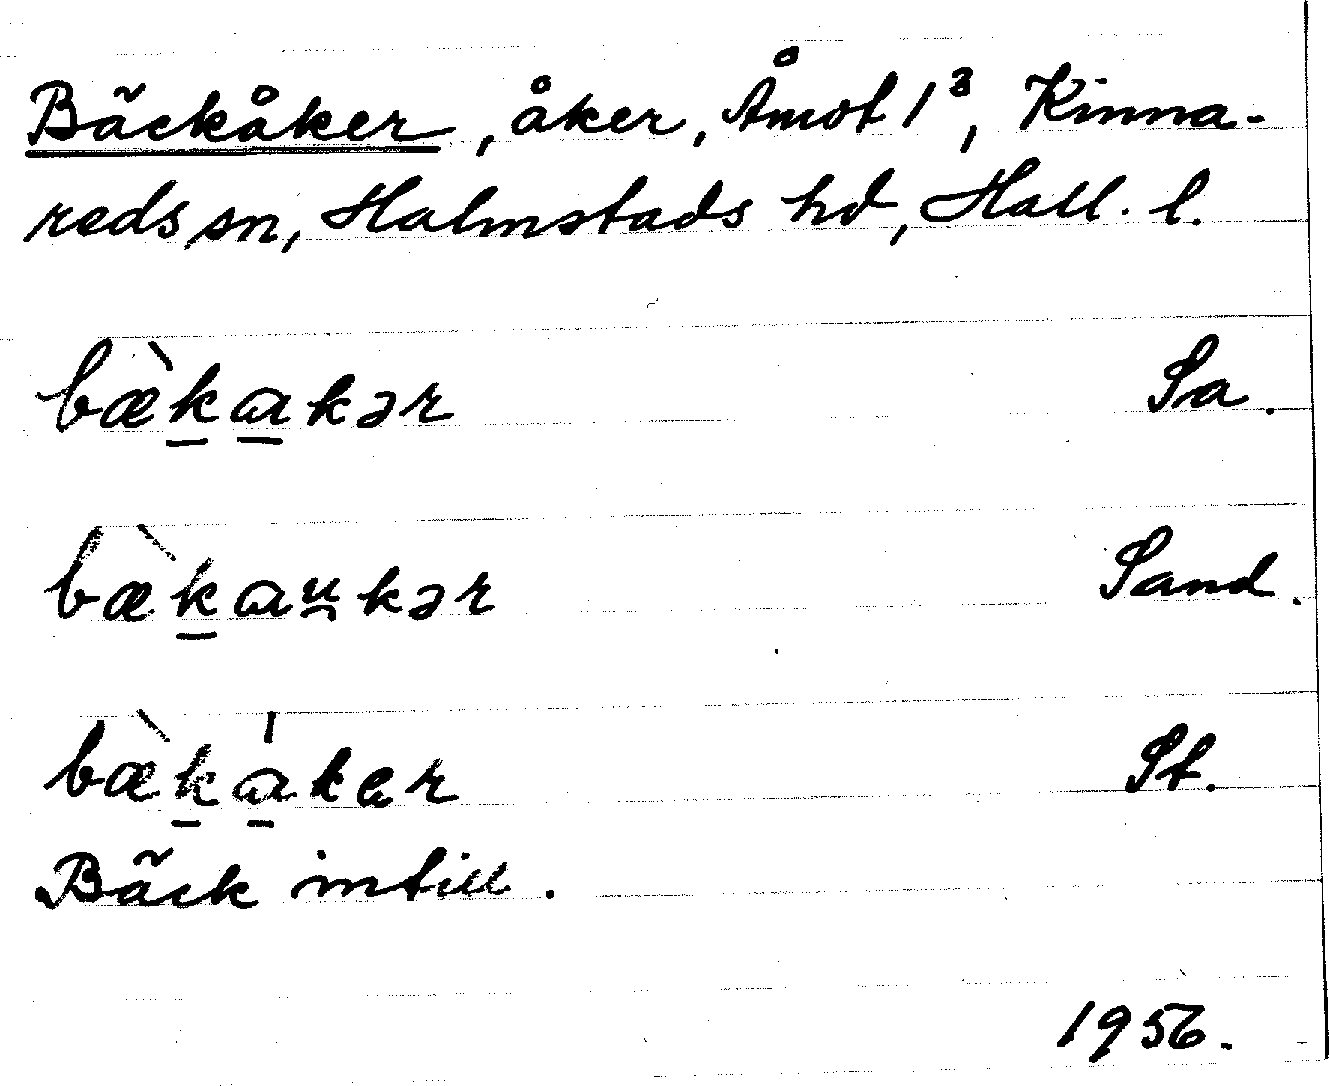 Bäckåker, åker, Åmot 1³, Kinna-
reds sn, Halmstads hd, Hall. l.
bæ̀k̠a̠kər Sa.
bæ̀k̠au̯kər Sand.
bæ̀k̠á̠ker St.
Bäck intill.
1956.